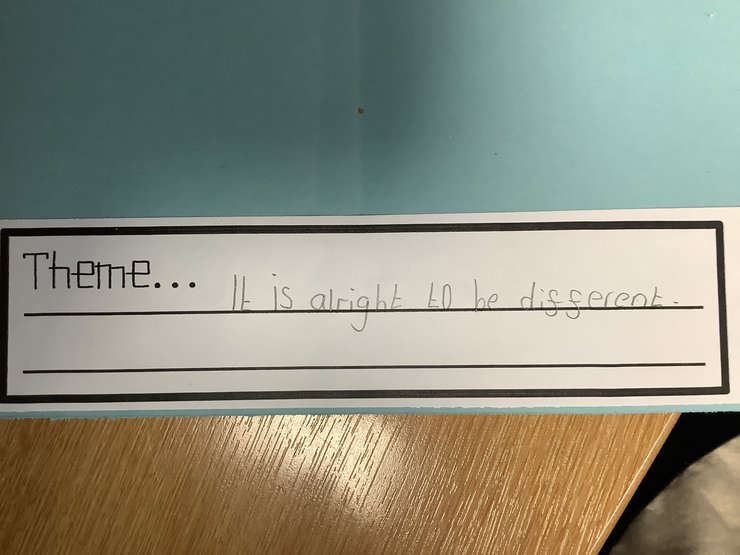 Theme... It is alright to be different.